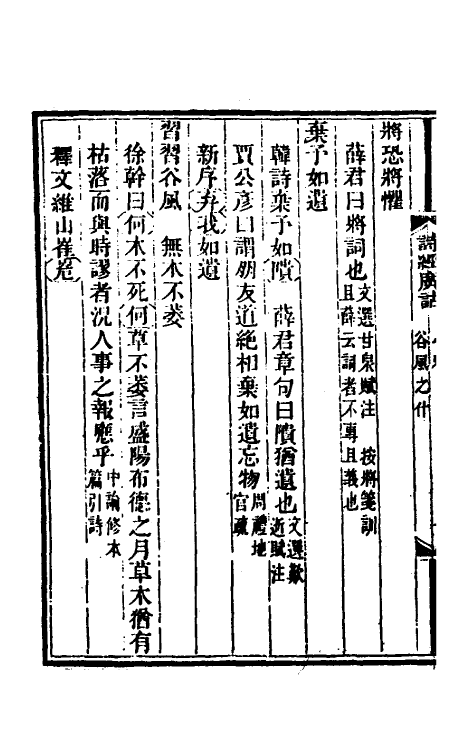 詩經廣詁 谷風之什
將恐將懼
薛君曰將詞也文選甘泉賦注 按將箋訓且薛云詞者不專且義也
棄予如遺
韓詩棄予如隤 薛君章句曰隤猶遺也文選歎逝賦注
賈公彥曰謂朋友道絶相棄如遺忘物周禮地官疏
新序弃我如遺
習習谷風 無木不萎
徐幹曰何木不死何草不萎言盛陽布德之月草木猶有
枯落而與時謬者況人事之報應乎中論修本篇引詩
釋文維山崔嵬